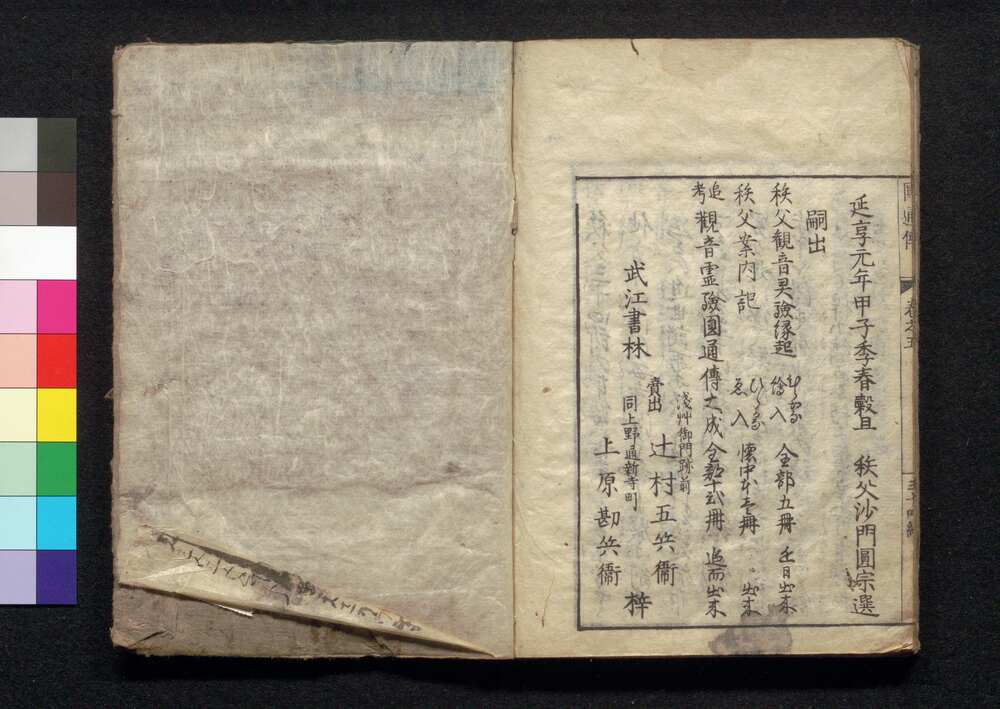 延享元年甲子季春穀旦　秩父沙門圓宗選
嗣出
秩父観音㚑驗縁起　ひらかな繪入　全部五冊　近日出来
秩父案内記　ひらかなゑ入　懐中本壱冊　〻出来
追考觀音霊驗圓通傳大成　全部十弐冊　追而出来
武江書林
賣出
淺艸御門跡前
辻村五兵衞
同上野通新寺町
上原勘兵衞　梓
圓通傳
巻之五